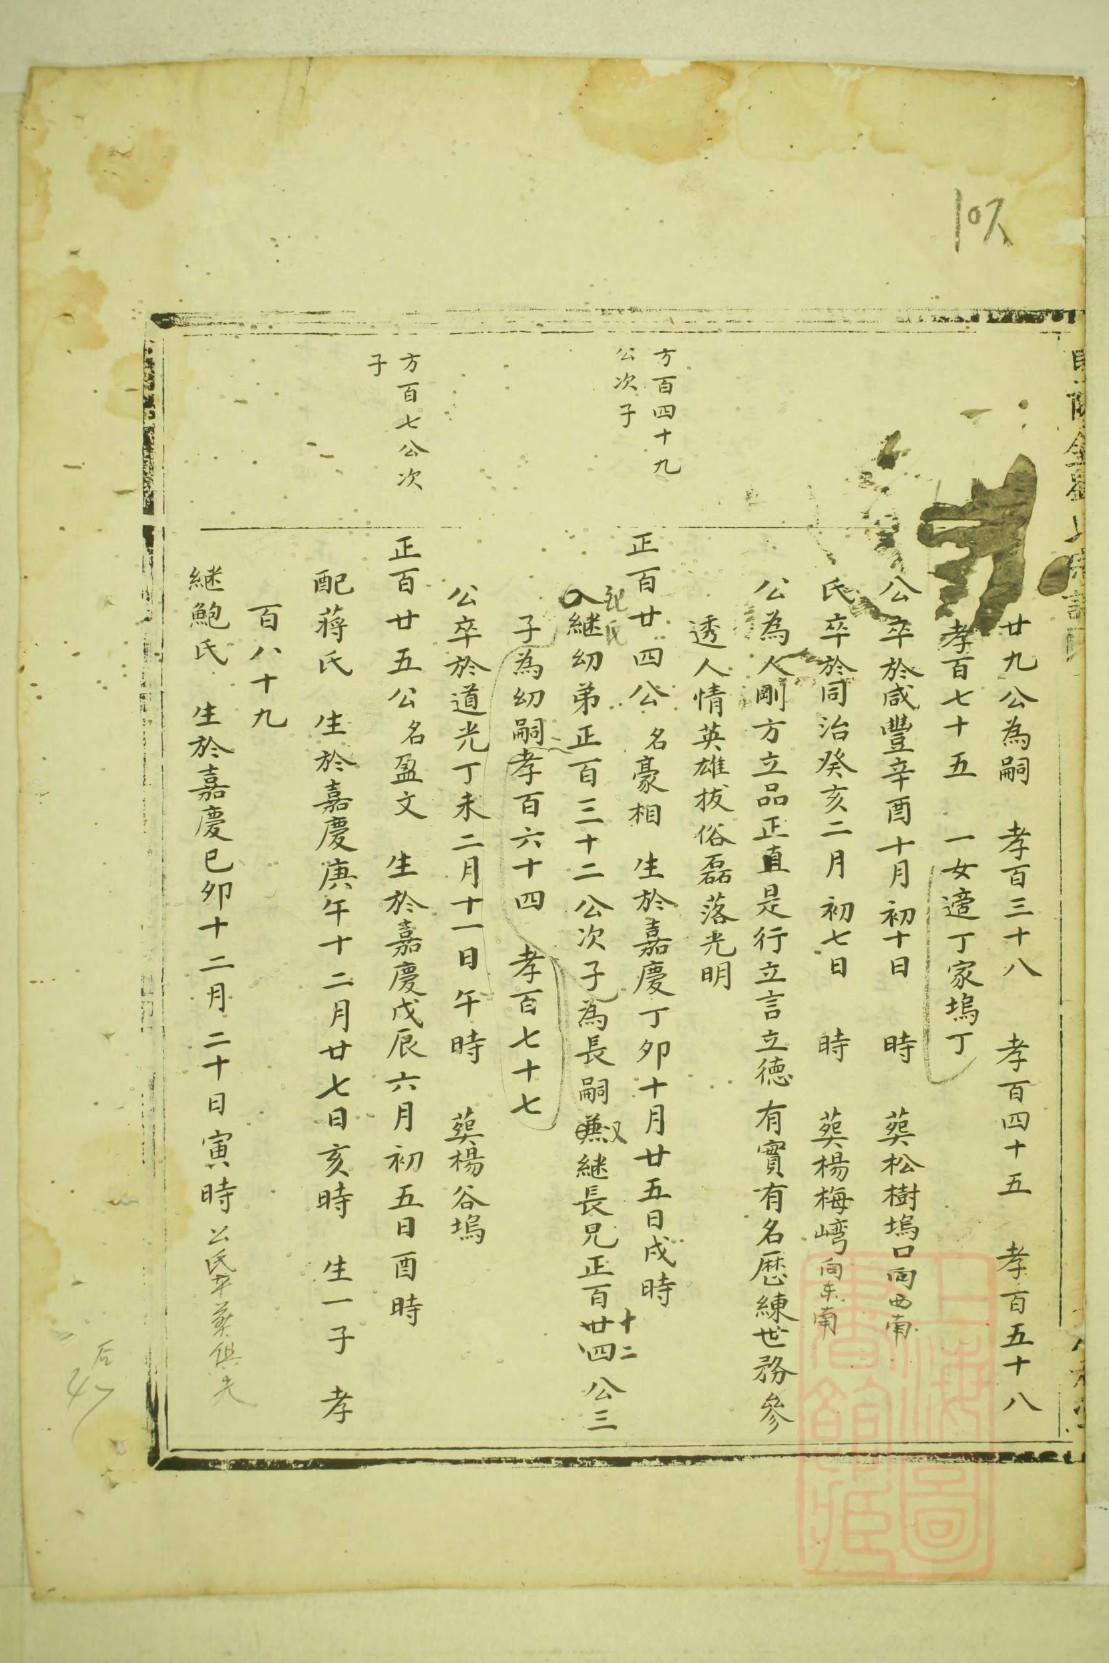 107
廿九公為嗣 孝百三十八 孝百四十五 孝百五十八
孝百七十五 一女適丁家塢丁
公卒於咸豐辛酉十月初十日 時 葬松樹塢口向西南
氏卒於同治癸亥二月初七日 時 葬楊梅嶨向东南
公為人剛方立品正直是行立言立德有實有名歷練世務參
透人情英雄拔俗磊落光明
方百四十九
公次子
正百廿四公 名豪相 生於嘉慶丁卯十月廿五日戌時
继幼弟正百三十二公次子為長嗣 又继長兄正百廿四公三
十二
子為幼嗣孝百六十四 孝百七十七
公卒於道光丁未二月十一日午時 葬楊谷塢
方百七公次
子
正百廿五公 名盈文 生於嘉慶戊辰六月初五日酉時
配蒋氏 生於嘉慶庚午十二月廿七日亥時 生一子 孝
百八十九
継鮑氏 生於嘉慶己卯十二月二十日寅時 公氏卒葬俱失
上海图書館藏